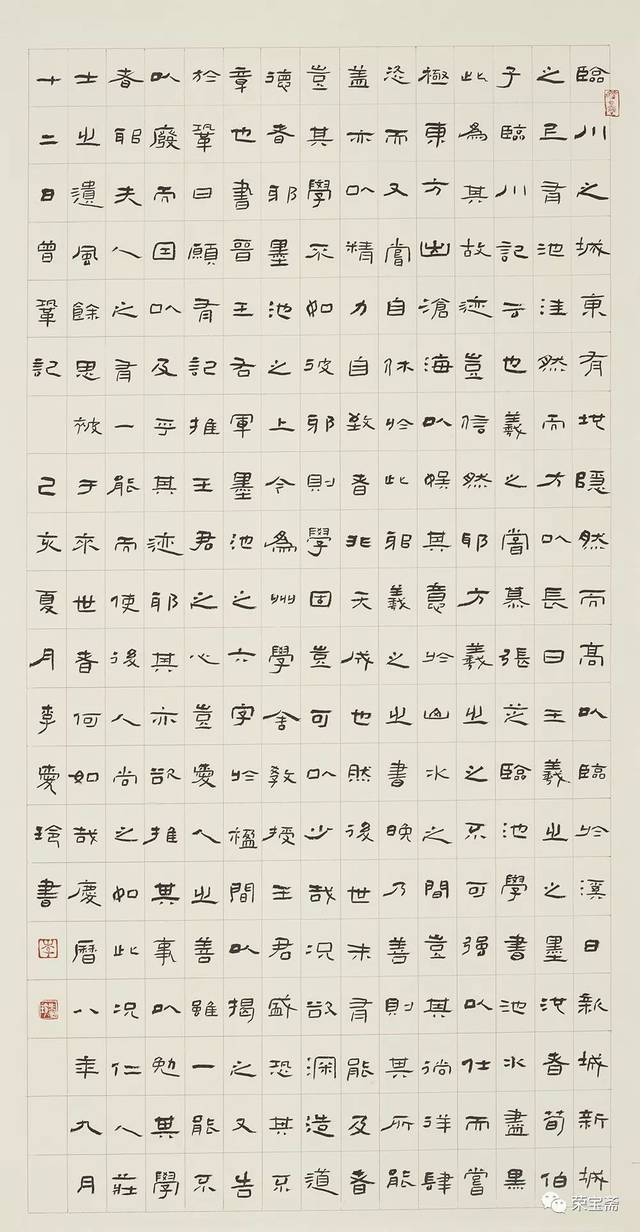 臨川之城東有地隱然而高以臨於溪曰新城新城
之上有池洼然而方以長曰王羲之之墨池者荀伯
子臨川記云也羲之嘗慕張芝臨池學書池水盡黑
此為其故迹豈信然耶方羲之之不可强以仕而嘗
極東方出滄海以娛其意於山水之間豈其徜徉肆
恣而又嘗自休於此耶羲之之書晚乃善則其所能
蓋亦以精力自致者非天成也然後世未有能及者
豈其學不如彼耶則學固豈可以少哉況欲深造道
德者耶墨池之上今為州學舍教授王君盛恐其不
章也書晉王右軍墨池之六字於楹間以揭之又告
於鞏曰願有記推王君之心豈愛人之善雖一能不
以廢而因以及乎其迹耶其亦欲推其事以勉其學
者耶夫人之有一能而使後人尚之如此況仁人莊
士之遺風餘思被于來世者何如哉慶曆八年九月
十二日曾鞏記 己亥夏月李愛書
荣宝斋